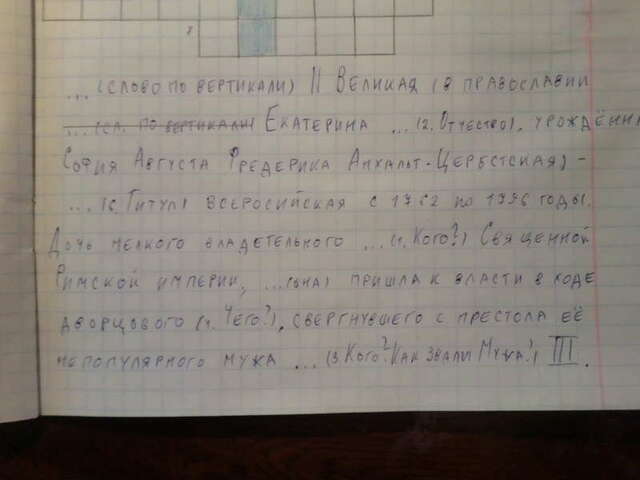 8
... (слово по вертикали) II Великая (в православии
... (сл. по вертикали) Екатерина ... (2. Отчество), урождённ
София Августа Фредерика Анхальт-Цербстская) -
... (6. Титул) всеросийская с 1762 по 1796 годы.
Дочь мелкого владетельного ... (1. Кого?) Священной
Римской империи, ... (она) пришла к власти в ходе
дворцового (4. Чего?), свергнувшего с престола её
непопулярного мужа ... (3 Кого? Как звали мужа?) III.